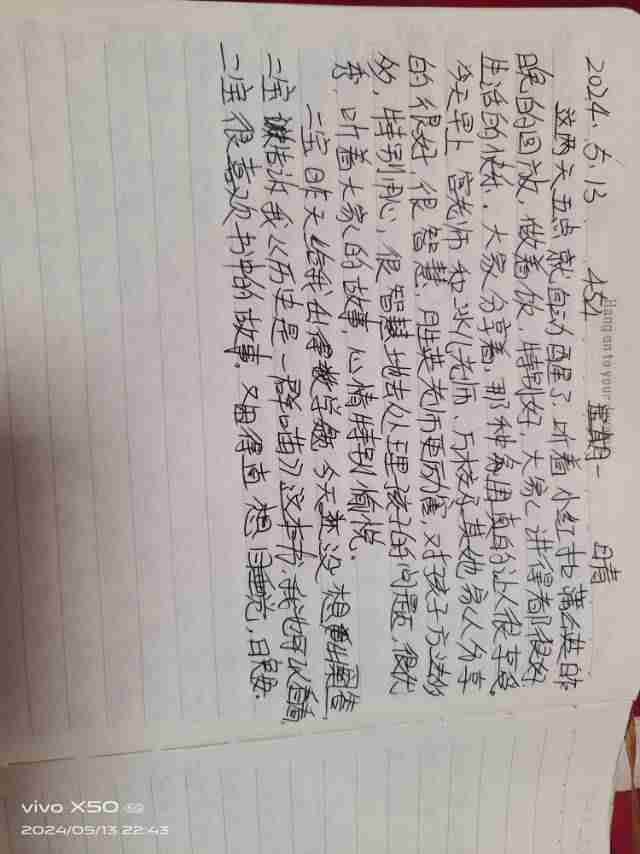 2024.5.13 454 星期一 晴
这两天五点就自动醒了,听着小红书 昨
晚的回放,做着饭,特别好,大家讲得都很好
生活的状态,大家分享着,那种氛围真的让人很享受。
今天早上 老师和冰儿老师、 其他家人分享
的很好,很智慧,胜英老师更厉害,对孩子方法多
多,特别用心,很智慧地去处理孩子的问题,很优
秀,听着大家的故事,心情特别愉悦。
二宝昨天给我出得数学题,今天 没想 答案
二宝 告诉我《历史是一群喵》这本书,我也可以看看,
二宝很喜欢书中的故事。 困得直想睡觉,日 安.
Hang on to your
vivo X50 5G
2024/05/13 22:43